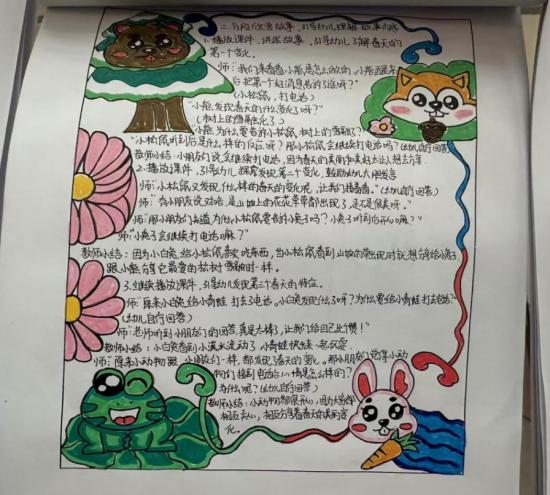 二、分段欣赏故事,引导幼儿理解故事内容
1.播放课件,讲述故事,引导幼儿了解春天的
第一个变化。
师:我们来看看小熊是怎么做的,小熊醒来
后把第一个好消息告诉了谁呀?
(小松鼠,打电话)
"小熊发现春天的什么变化了呀?"
(树上的雪融化了)
"小熊为什么要告诉小松鼠,树上的雪融了?
"小松鼠听到后是什么样的反应呀?那小松鼠会继续打电话吗?(幼儿自行回答)
教师小结:小朋友们说会继续打电话,因为春天的美丽
2.播放课件,引导幼儿探索发现第二个变化,鼓励幼儿大胆发言
师:"小松鼠又发现什么样的春天的变化呢,让我们接着看。"(幼儿自行回答)
师:"有小朋友说对咯,是山坡上的花花草草都出现了,是不是很美呀。"
师:"那小朋友们知道为什么小松鼠要告诉小兔子吗?小兔子听到后开心嘛?"
师:"小兔子会继续打电话嘛?"
教师小结:因为小白兔喜欢吃东西,当小松鼠看到山坡的草出现时就想告诉小兔子
跟小熊分享它最爱的松树雪融时一样。
3.继续播放课件,引导幼儿发现第三个春天的特征。
师:原来小兔给小青蛙打去了电话。小白兔发现什么了呀?为什么要给小青蛙打去电话?"
(幼儿自行回答)
师:"老师听到小朋友们的回答真是太棒了,让我们给自己比个赞!"
教师小结:小白兔看到小溪水流动了,小青蛙快来一起玩耍
师:"原来小动物跟小朋友们一样,都发现了春天的变化。那小朋友们觉得小动
物们接到电话后心情是怎么样的?
为什么呢?(幼儿自行回答)
教师小结:小动物都很开心,因为大家都
相互关心,相互分享着春天的美丽变
化。